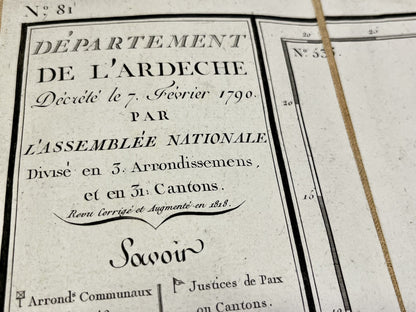 N.º 81
DÉPARTEMENT
DE L'ARDECHE
Décrété le 7. Février 1790.
PAR
L'ASSEMBLÉE NATIONALE
Divisé en 3. Arrondissemens,
et en 31: Cantons.
Revu Corrigé et Augmenté en 1818.
Savoir
Arrond.ˢ Communaux
Justices de Paix
ou Cantons.
20
20
N.º 535.
20
15